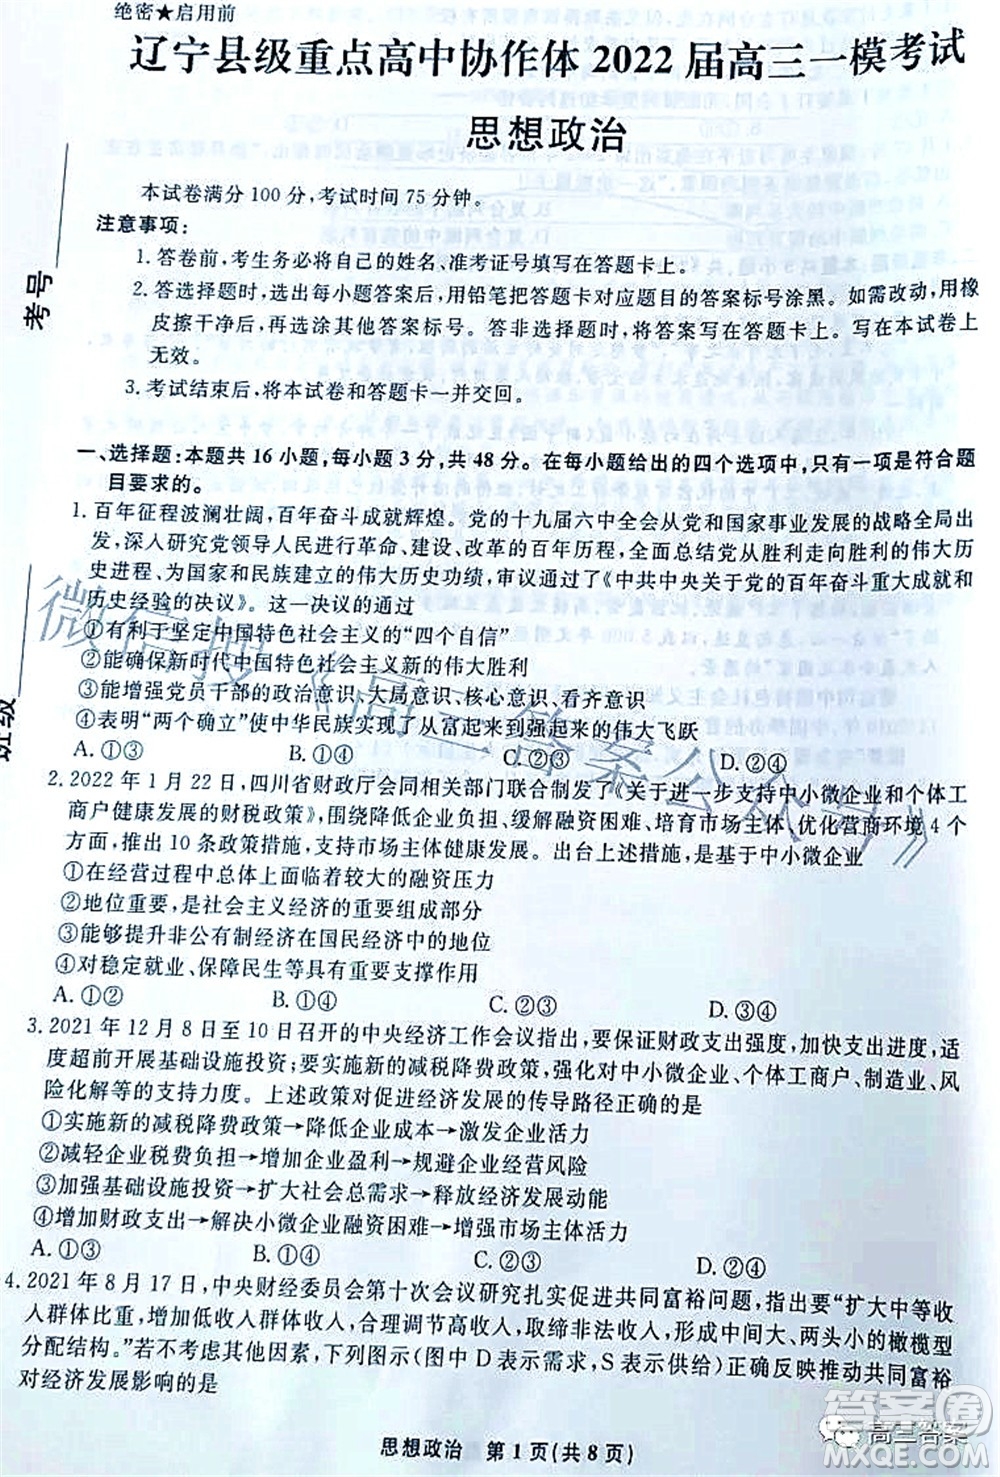 绝密★启用前
辽宁县级重点高中协作体2022届高三一模考试
思想政治
本试卷满分100分,考试时间75分钟。
注意事项:
1.答卷前,考生务必将自己的姓名、准考证号填写在答题卡上。
2.答选择题时,选出每小题答案后,用铅笔把答题卡的答案标号涂黑。如需改动,用橡
皮擦干净后,再选涂其他答案标号。答非选择题时,将答案写在答题卡上。写在本试卷上
无效。
3.考试结束后,将本试卷和答题卡一并交回。
考号
班级
一、选择题:本题共16小题,每小题3分,共48分。在每小题给出的四个选项中,只有一项是符合题
目要求的。
1.百年征程波澜壮阔,百年奋斗成就辉煌。党的十九届六中全会从党和国家事业发展的战略全局出
发,深入研究党领导人民进行革命、建设、改革的百年历程,全面总结党从胜利走向胜利的伟大历史
进程、为国家和民族建立的伟大历史功绩,审议通过了《中共中央关于党的百年奋斗重大成就和
历史经验的决议》。这一决议的通过
①有利于坚定中国特色社会主义的“四个自信”
②能确保新时代中国特色社会主义新的伟大胜利
③能增强党员干部的政治意识、大局意识、核心意识、看齐意识
④表明“两个确立”使中华民族实现了从富起来到强起来的伟大飞跃
A.①③ B.①④ C.②③ D.②④
2.2022年1月22日,四川省财政厅会同相关部门联合制发了《关于进一步支持中小微企业和个体工
商户健康发展的财税政策》,围绕降低企业负担、缓解融资困难、培育市场主体、优化营商环境4个
方面,推出10条政策措施,支持市场主体健康发展。出台上述措施,是基于中小微企业
①在经营过程中总体上面临着较大的融资压力
②作为载体,是社会主义经济的重要组成部分
③能够提升非公有制经济在国民经济中的地位
④对稳定就业、保障民生等具有重要支撑作用
A.①② B.①④ C.②③ D.②④
3.2021年12月8日至10日召开的中央经济工作会议指出,要保证财政支出强度,加快支出进度;适
度超前开展基础设施投资;要实施新的减税降费政策,强化对中小微企业、个体工商户、制造业、风
险化解等的支持力度。上述政策对促进经济发展的传导路径正确的是
①实施新的减税降费政策→降低企业成本→激发企业活力
②减轻企业税费负担→增加企业盈利→规避企业经营风险
③加强基础设施投资→扩大社会总需求→释放经济发展动能
④增加财政支出→解决小微企业融资困难→增强市场主体活力
A.①③ B.①④ C.②③ D.②④
4.2021年8月17日,中央财经委员会第十次会议研究扎实促进共同富裕问题,指出要“扩大中等收
入群体比重,增加低收入群体收入,合理调节高收入,取缔非法收入,形成中间大、两头小的橄榄型
分配结构。”若不考虑其他因素,下列图示(图中D表示需求,S表示供给)正确反映推动共同富裕
对经济发展影响的是
思想政治 第1页(共8页)
微信搜《高三答案公众号》
高三答案
答案圈
MXQE.COM